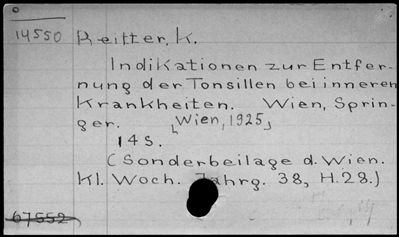 14550 Reitter, K.
Indikationen zur Entfer-
nung der Tonsillen bei inneren
Krankheiten. Wien, Sprin-
ger. Wien, 1925,
14 S.
(Sonderbeilage d. Wien.
Kl. Woch. Jahrg. 38, H.28.)
67552